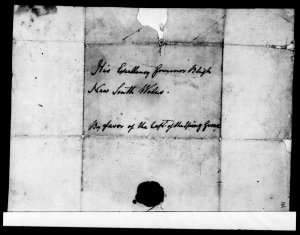 His Excellency Governor Bligh
New South Wales.
By favor of the Capt. of the Spring Grove